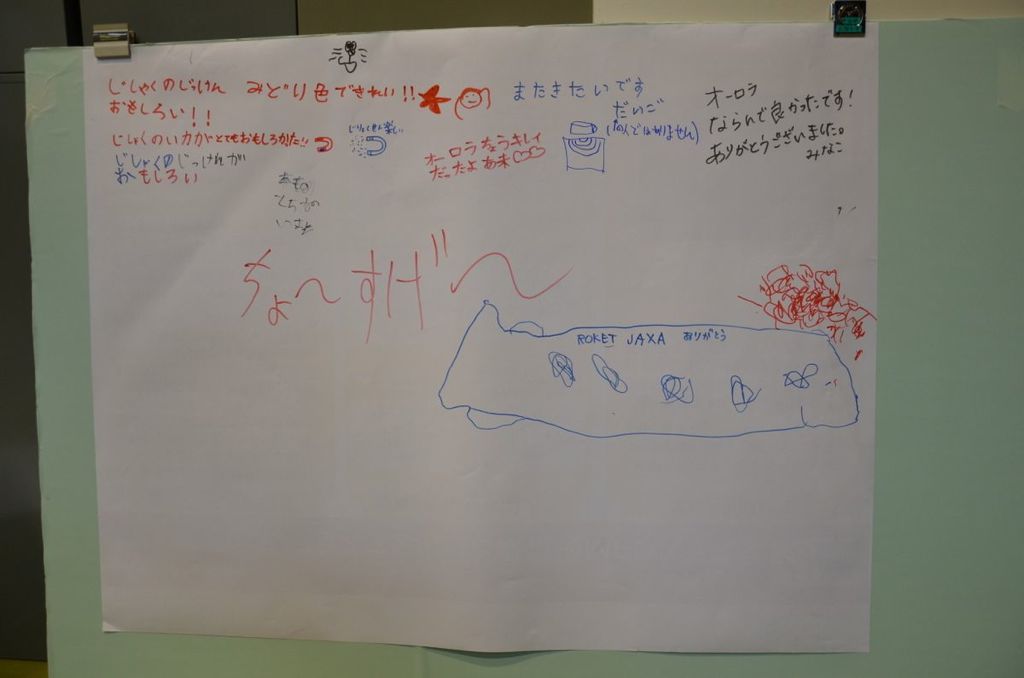 じしゃくのじっけん
おもしろい!!
みどり色できれい!!
じしゃくのい力がとてもおもしろかた!!
じしゃくのじっけんが
おもしろい
じりょくせん楽しい
オーロラちょうキレイ
だったよ あ未
またきたいです
だいご
オーロラ
ならんで良かったです!
ありがとうございました。
みなこ
ちょ〜すげ〜
ROKET JAXA ありがとう